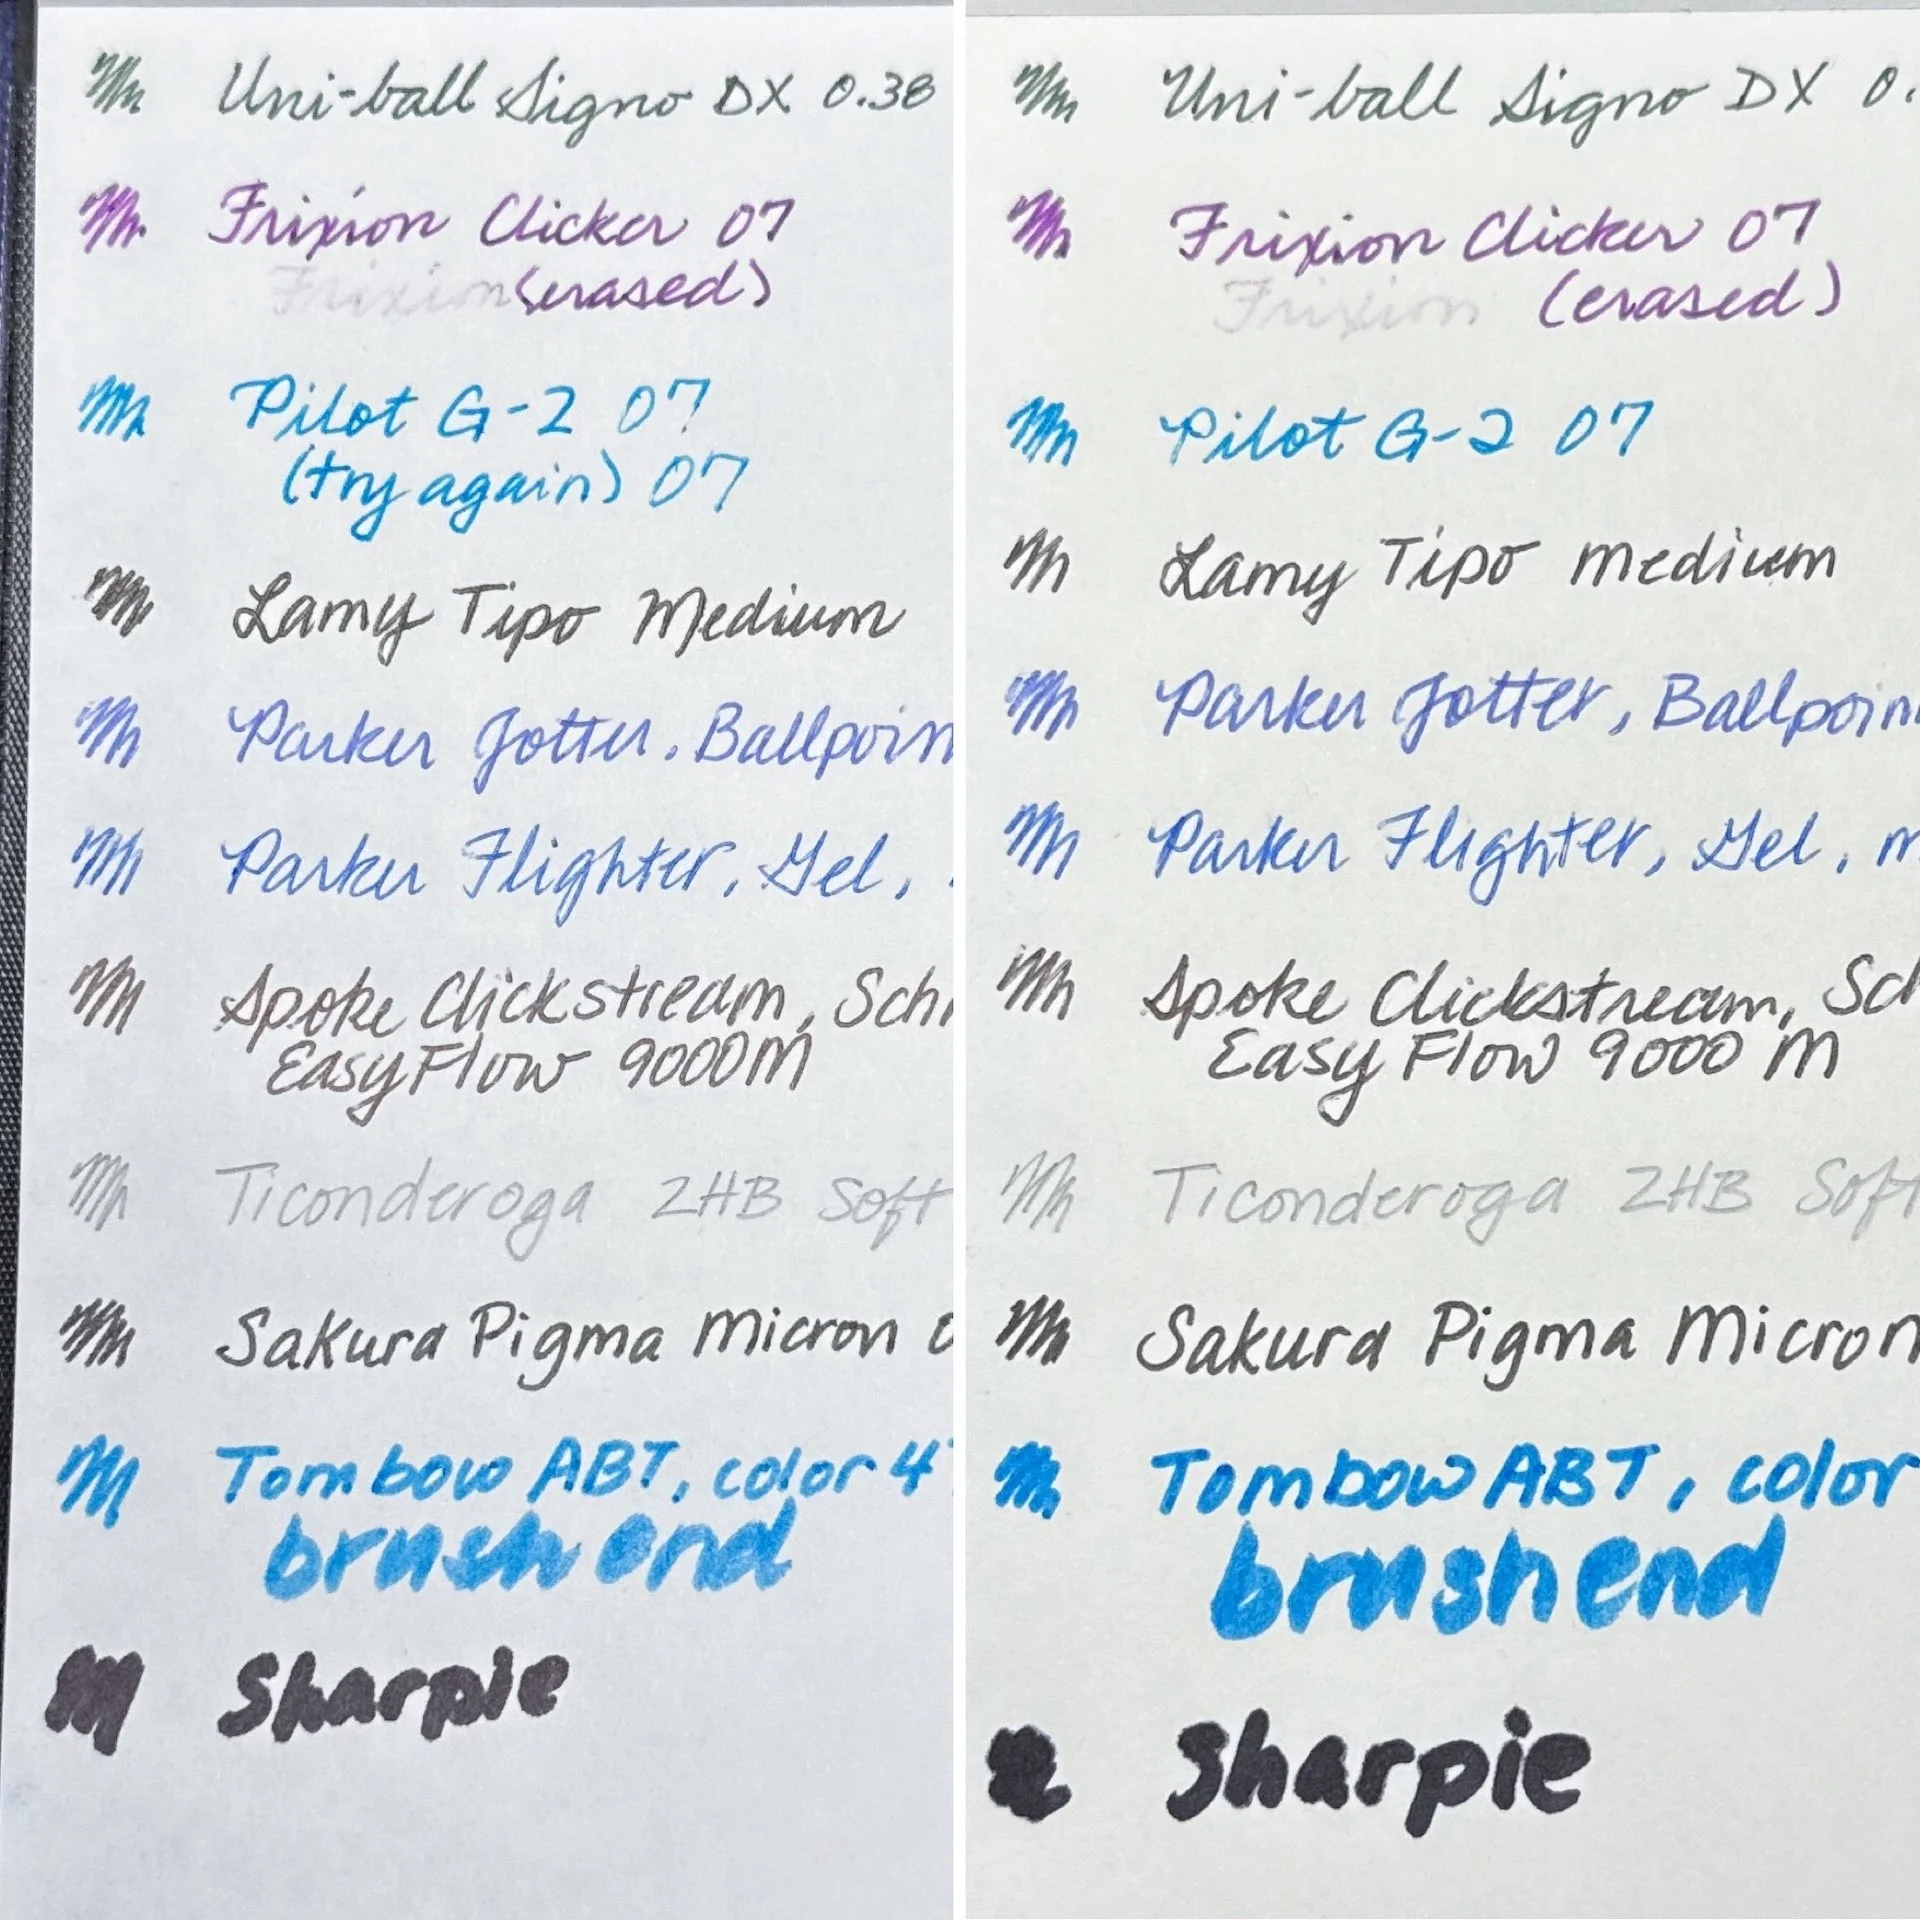 Uni-ball Signo DX 0.38
Frixion Clicker 07
Frixion (erased)
Pilot G-2 07
(try again) 07
Lamy Tipo Medium
Parker Jotter, Ballpoin
Parker Flighter, Gel,
Spoke Clickstream, Sch
EasyFlow 9000M
Ticonderoga 2HB Soft
Sakura Pigma Micron 0
Tombow ABT, color 4
brush end
Sharpie
Uni-ball Signo DX 0.
Frixion Clicker 07
Frixion (erased)
Pilot G-2 07
Lamy Tipo medium
Parker Jotter, Ballpoin
Parker Flighter, Gel, m
Spoke Clickstream, Sc
Easy Flow 9000 M
Ticonderoga 2HB Soft
Sakura Pigma Micron
Tombow ABT, color
brush end
Sharpie